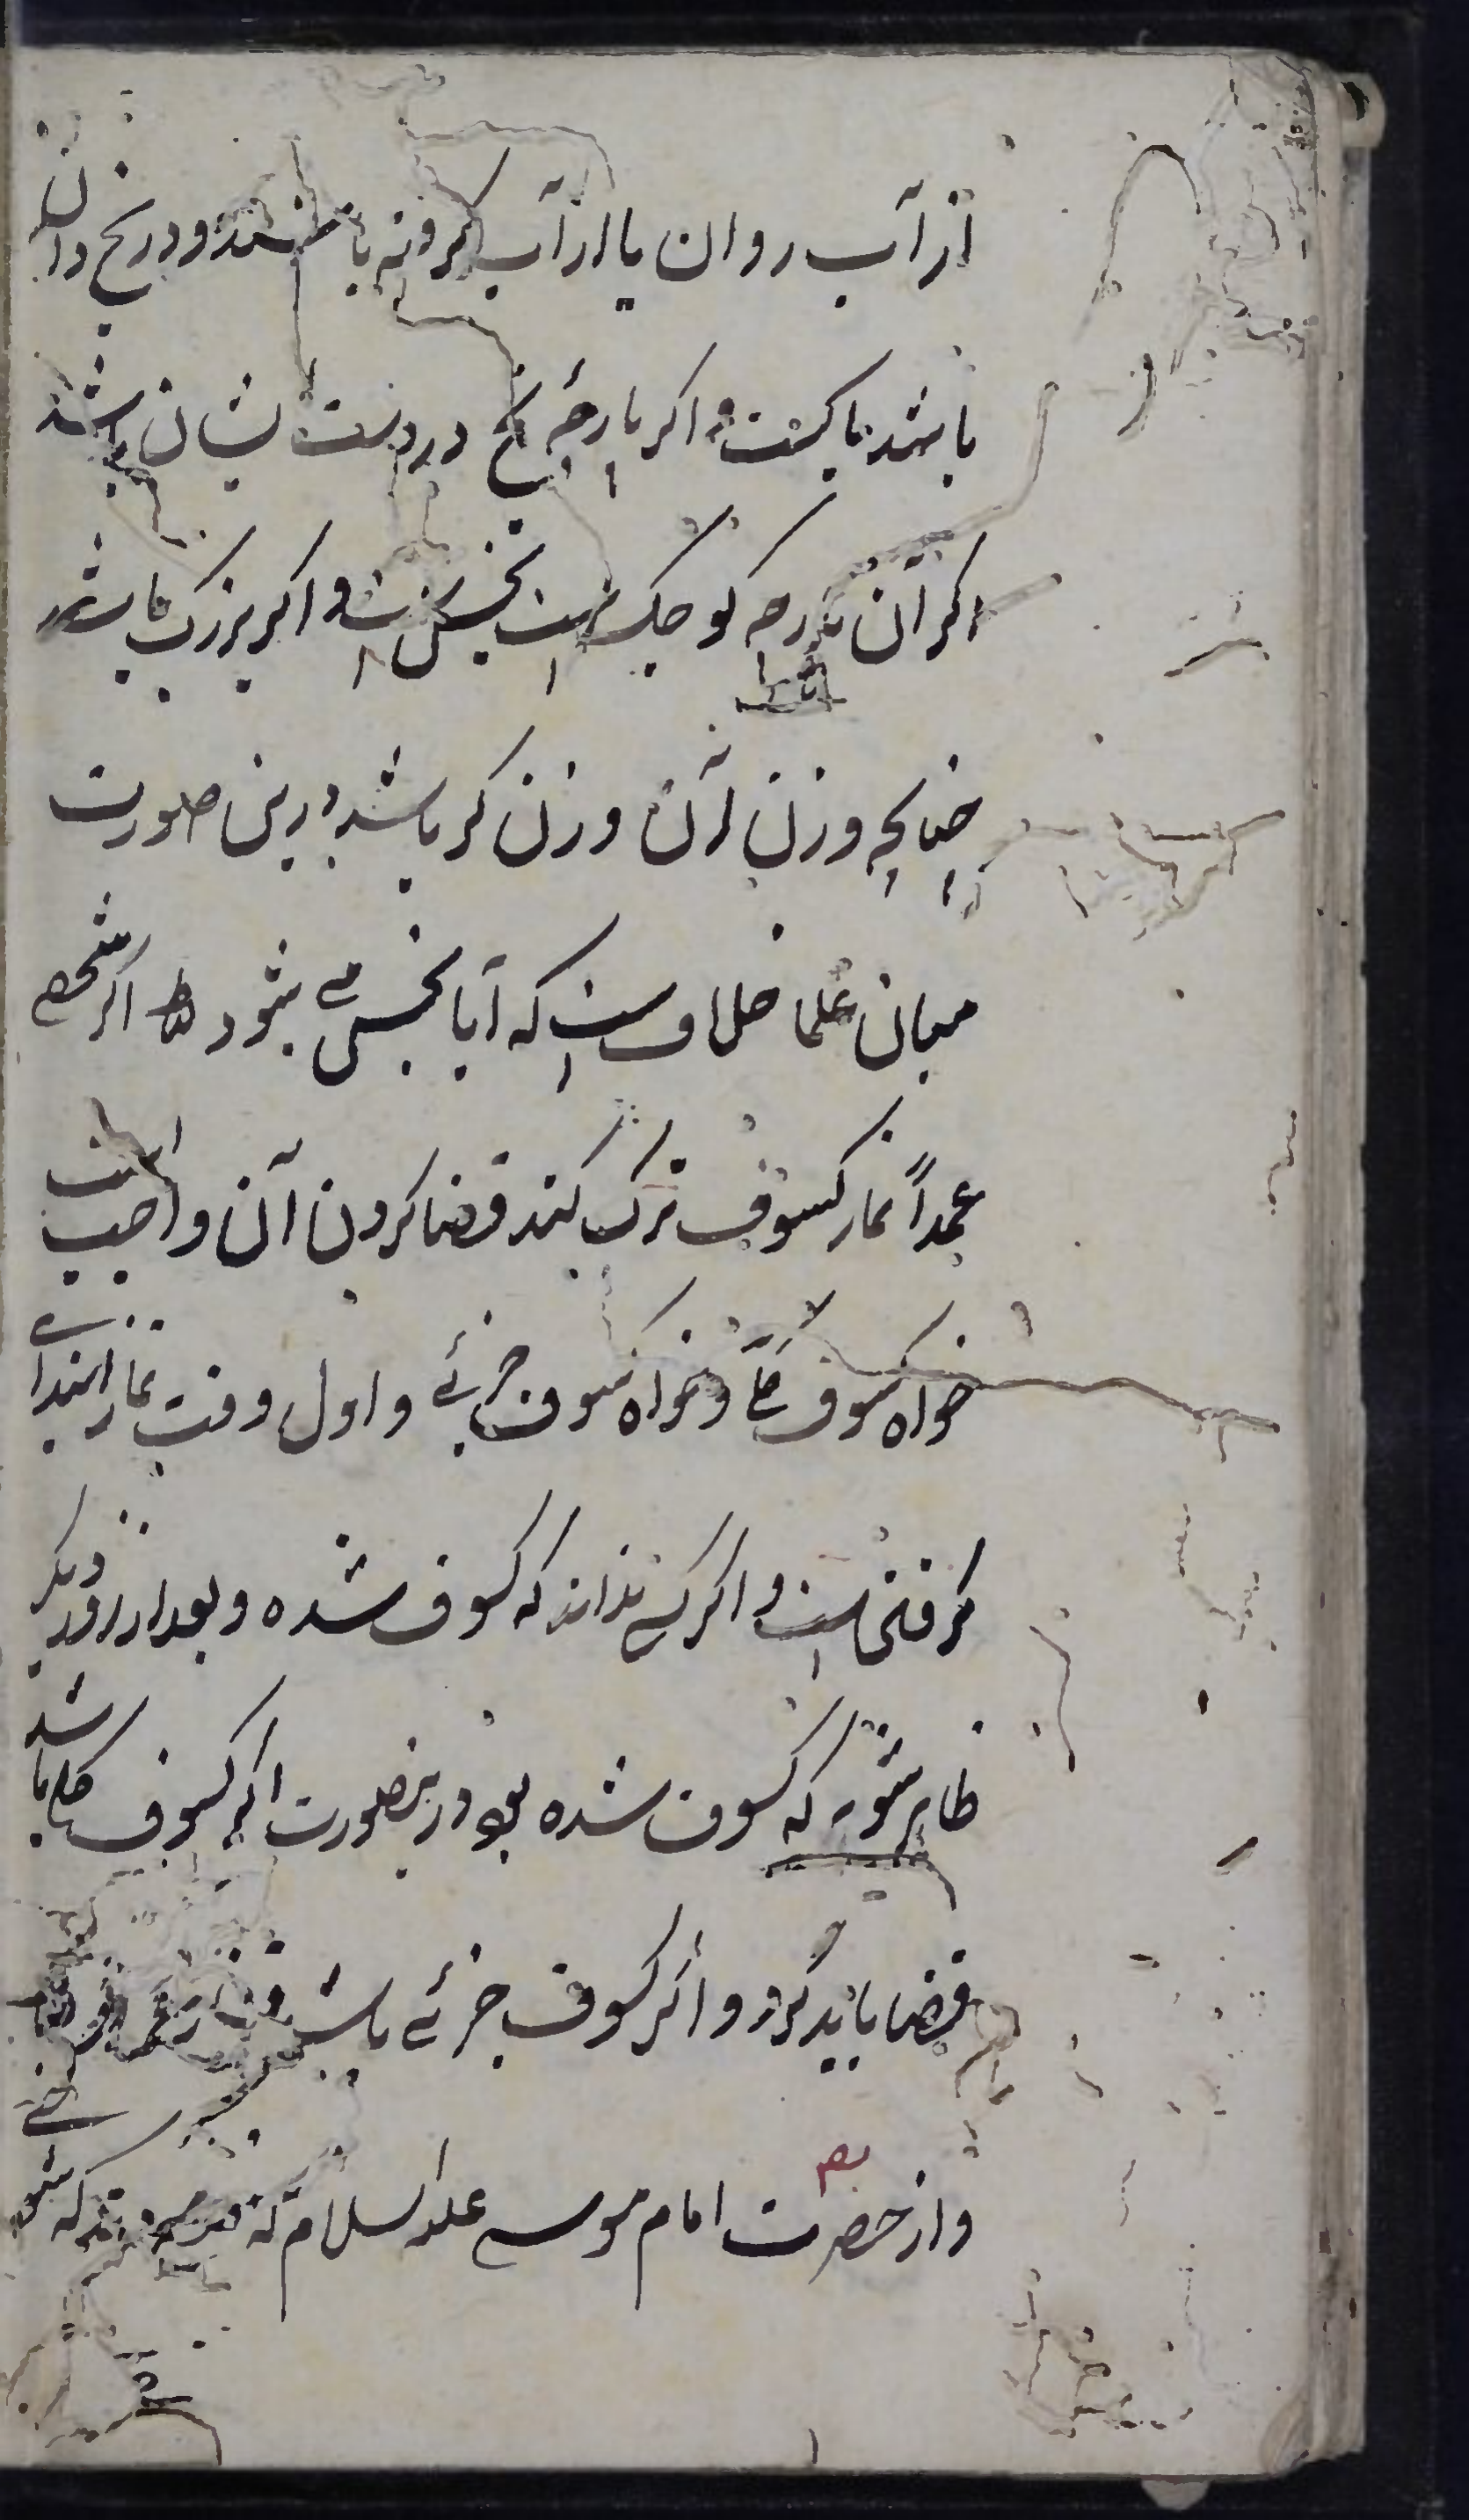 از آب روان یا از آب کر و نه باشند و در یخ دان
باشد پاکست و اگر پارچه یخ در دست یشان باشد
اگر آن پارچه کوچک است نجس است و اگر بزرگ باشد
چنانچه وزن آن وزن کر باشد درین صورت
میان علما خلافست که آیا نجس می شود یا نه اگر شخصی
عمداً نماز کسوف ترک کند قضا کردن آن واجب است
خواه کسوف کلّی و خواه کسوف جزئی و اول وقت نماز ابتدای
گرفتن است و اگر کسی نداند که کسوف شده و بعد از روز دیگر
ظاهر شود که کسوف شده بود درینصورت اگر کسوف کلی باشد
قضا باید کرد و اگر کسوف جزئی باشد
و از حضرت امام موسی علیه السلام که شخصی